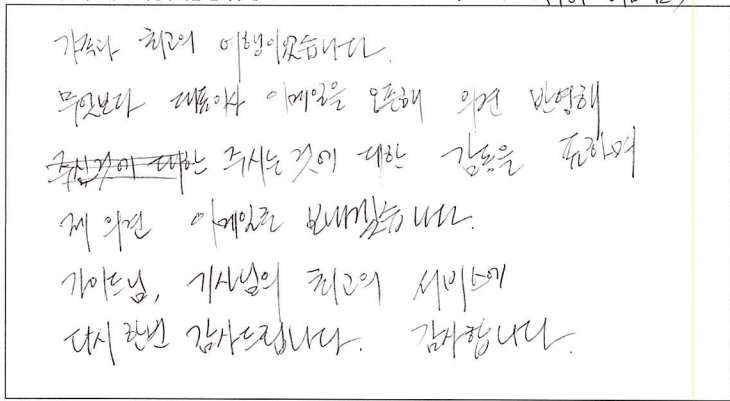 가족과 최고의 여행이었습니다.
무엇보다 대표이사 이메일을 오픈해 의견 반영해
주신것에 대한 주시는 것에 대한 감동을 표하며
제 의견 이메일로 보내겠습니다.
가이드님, 기사님의 최고의 서비스에
다시 한번 감사드립니다. 감사합니다.